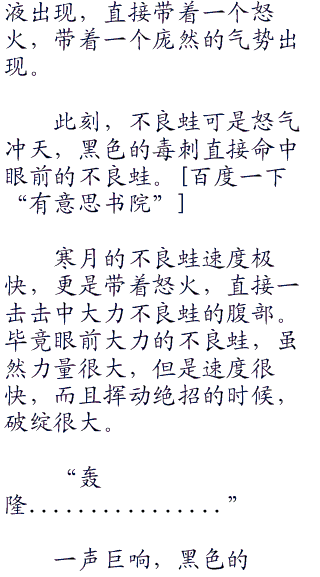 液出现，直接带着一个怒
火，带着一个庞然的气势出
现。
此刻，不良蛙可是怒气
冲天，黑色的毒刺直接命中
眼前的不良蛙。[百度一下
“有意思书院”]
寒月的不良蛙速度极
快，更是带着怒火，直接一
击击中大力不良蛙的腹部。
毕竟眼前大力的不良蛙，虽
然力量很大，但是速度很
快，而且挥动绝招的时候，
破绽很大。
“轰
隆................”
一声巨响，黑色的